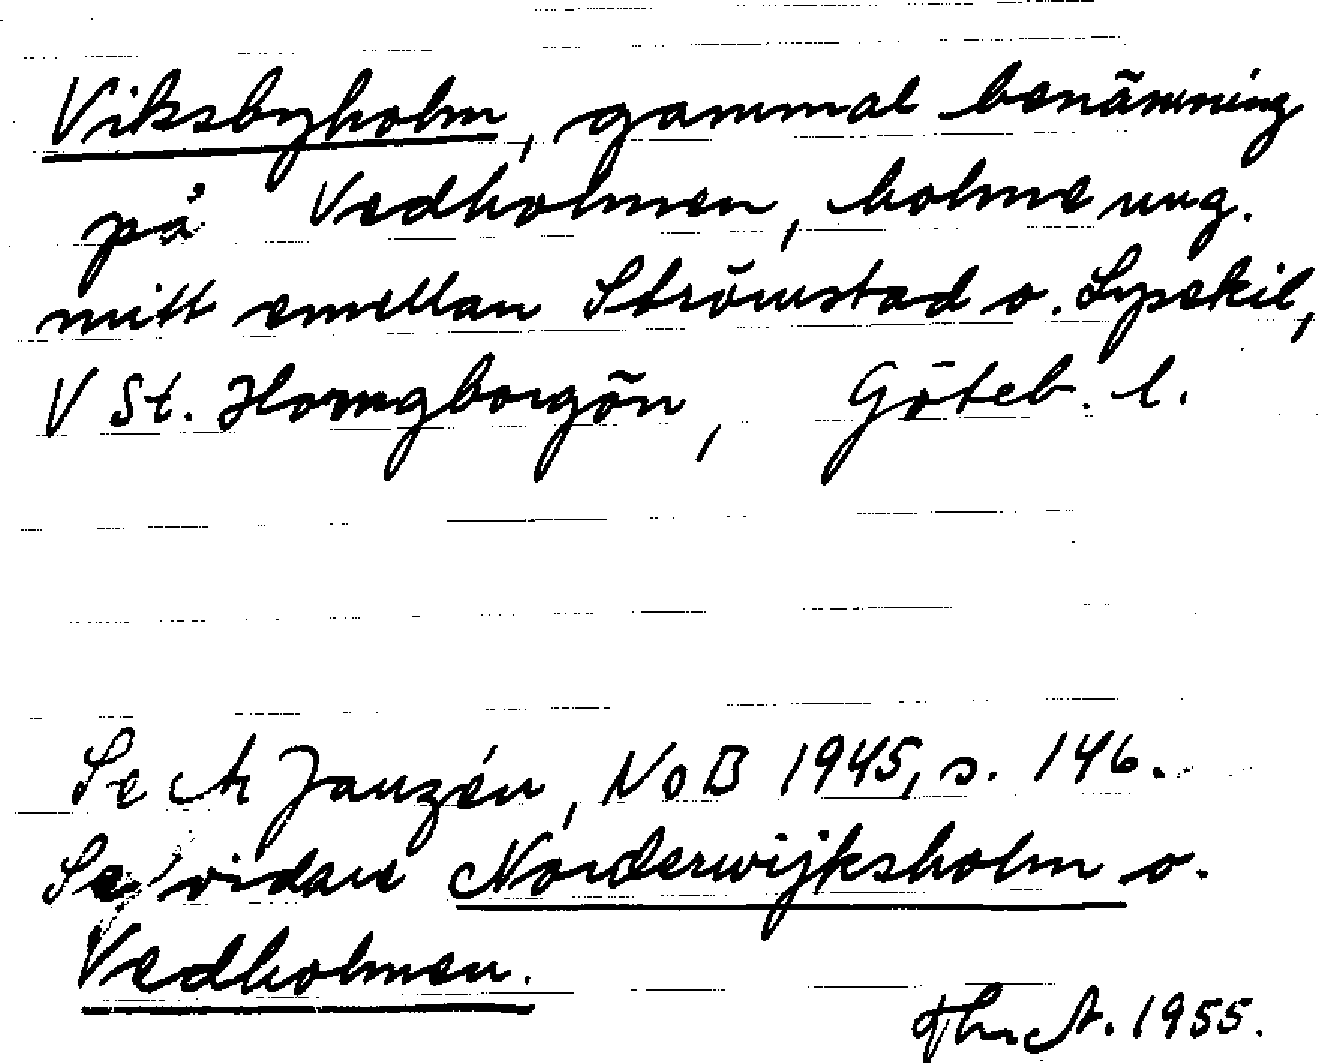 Viksbyholm, gammal benämning
på Vedholmen, holme ung.
mitt emellan Strömstad o. Lysekil,
V St. Hornøborgön, Göteb. l.
Se A Janzén, NoB 1945, s. 146.
Se vidare Norderwijksholm o.
Vedholmen.
A. 1955.